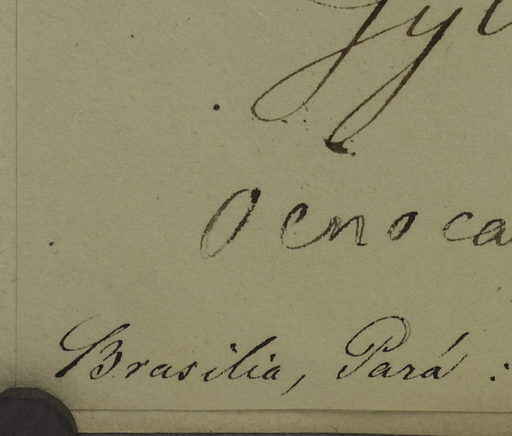 Ocnoca
Brasilia, Pará :